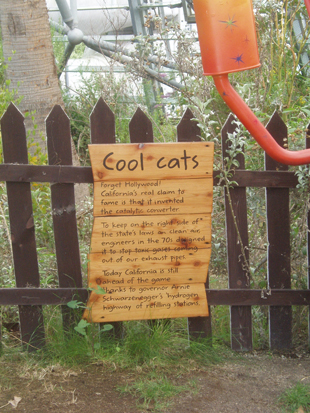 Cool cats
Forget Hollywood!
California's real claim to
fame is that it invented
the catalytic converter.
To keep on the right side of
the state's laws on clean air
engineers in the 70s designed
it to stop toxic gases coming
out of our exhaust pipes.
Today California is still
ahead of the game
thanks to governor Arnie
Schwarzenegger's 'hydrogen
highway' of refilling stations.